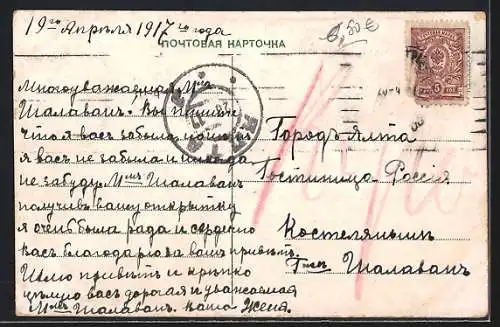 19го Апрѣля 1917го года
6,50€
ПОЧТОВАЯ КАРТОЧКА
Многоуважаемая М-ме
Шалаванъ! Вы пишите
что я васъ забыла
я васъ не забыла и никогда
не забуду М-ме Шалаванъ
получивъ вашу открытку
я очень была рада и сердечно
васъ благодарю за вашъ привѣтъ.
Шлю привѣтъ и крѣпко
цѣлую васъ дорогая и уважаемая
М-ме Шалаванъ. ваша Женя.
ЯЛТА
5 КОП 5
Городъ Ялта
Гостиница Россія
Костеляншѣ
Г-жѣ Шалаванъ